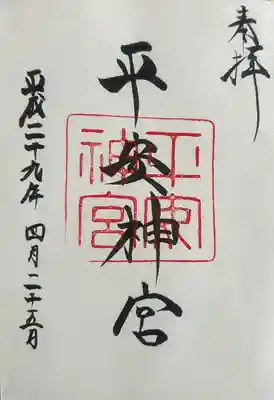 奉拝
平安神宮
平安神宮
平成二十九年 四月二十五月